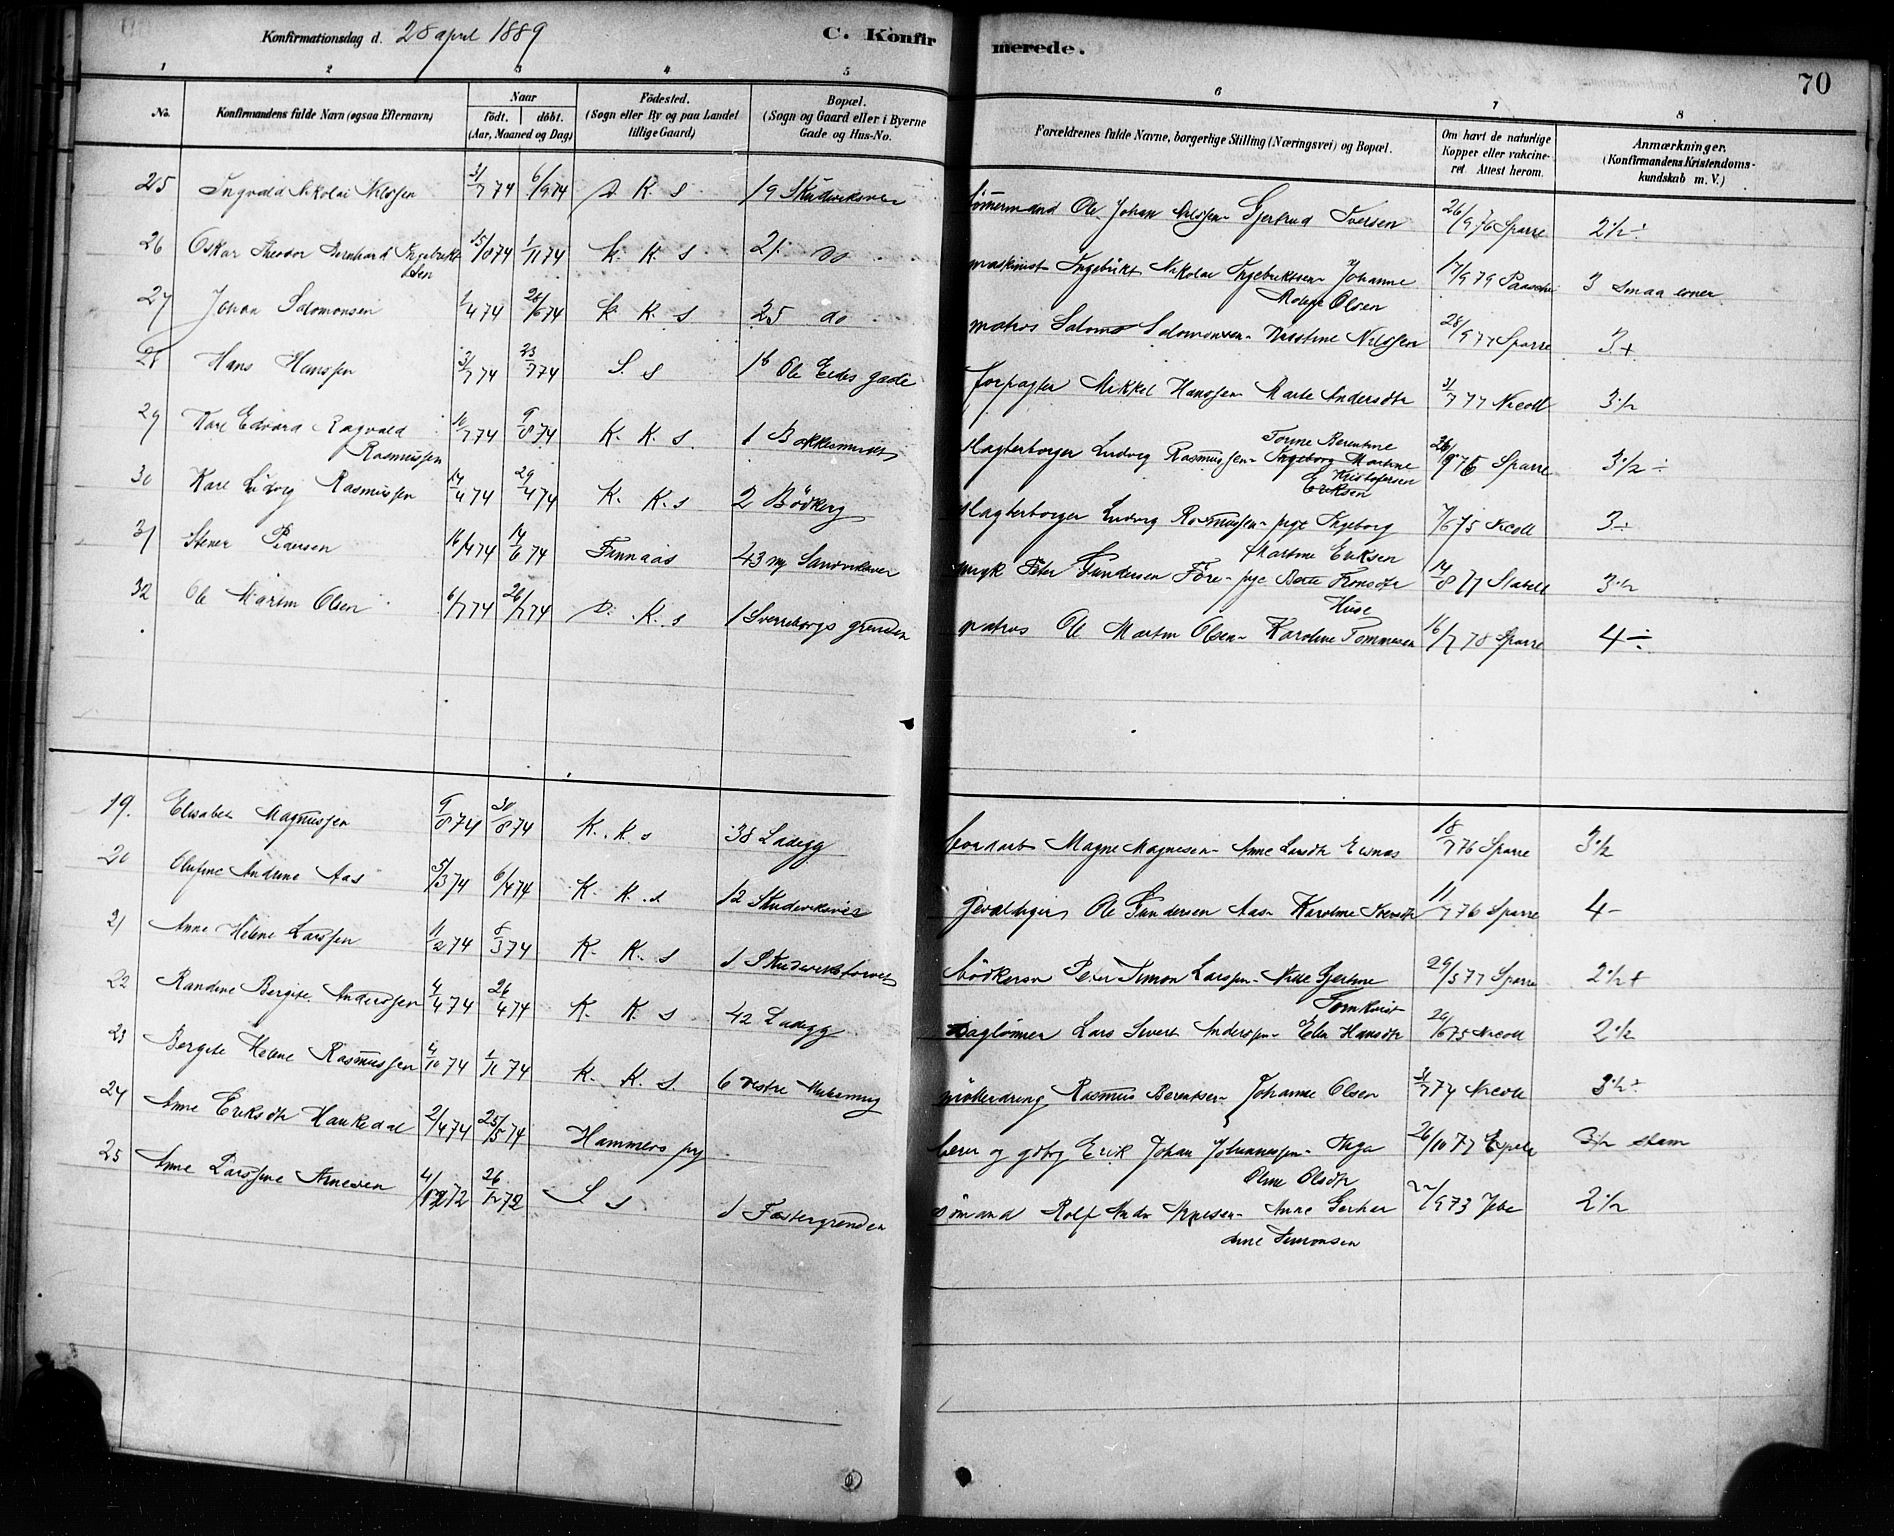 Konfirmationsdag d. 28 april 1889
C. Konfirmerede.
70
1 2 3 4 5 6 7 8
No. Konfirmandens fulde Navn (ogsaa Efternavn) Naar født. døbt. (Aar, Maaned og Dag) Fødested. (Sogn eller By og paa Landet tillige Gaard) Bopæl. (Sogn og Gaard eller i Byerne Gade og Hus-No. Forældrenes fulde Navne, borgerlige Stilling (Næringsvei) og Bopæl. Om havt de naturlige Kopper eller vakcineret. Attest herom. Anmærkninger. (Konfirmandens Kristendomskundskab m. V.)
25 Ingvald Nikolai Nilssen 31/7 74 6/9 74 D. K. s 19 Skudeviksvei tömermand Ole Johan Nilssen - Gjertrud Iversen 26/9 76 Sparre 2½ ÷
26 Oskar Theodor Bernhard Ingebriktsen 15/8 74 1/11 74 K. K. s 21 do maskinist Ingebrikt Nikolai Ingebriktsen - Johanne Olsen 17/9 79 Paasche 3 smaa evner
27 Johan Salomonsen 1/4 74 26/6 74 K. K. s 25 do matros Salomo Salomonsen - Kristine Nilssen 28/9 77 Sparre 3+
28 Hans Hanssen 3/7 74 23/7 74 S. s 16 Ole Eides gade forpagter Mikkel Hanssen - Marte Andersdtr 31/7 77 Nicoll 3½
29 Karl Edvard Ragvald Rasmussen 10/7 74 9/8 74 K. K. s 1 slagterborger Ludvig Rasmussen - Torine Berentine Kristofersen 26/9 76 Sparre 3½ ÷
30 Karl Ludvig Rasmussen 14/4 74 29/4 74 K. K. s 2 Bödkerg slagterborger Ludvig Rasmussen - pige Ingeborg Martine Eriksen 7/6 75 Nicoll 3÷
31 Stener Pedersen 16/4 74 14/6 74 Finnaas 43 ny Sandviksvei Peter Gundersen Före - pige Berte Tronsdtr Huse 14/8 77 Stabell 3½
32 Ole Martin Olsen 6/7 74 26/7 74 D. K. s 1 Sverreborgs grenden matros Ole Martin Olsen - Karoline Tommesen 16/7 78 Sparre 4 ÷
19. Elisabet Magnussen 9/8 74 30/8 74 K. K. s 38 Ladegg Magne Magnesen - Anne Larsdtr 18/7 76 Sparre 3½
20 Olufine Andrine Aas 5/3 74 6/4 74 K. K. s 12 Skudeviksvei gevaldiger Ole Gundersen Aas - Karoline Iversdtr 11/7 76 Sparre 4-
21 Anne Helene Larssen 11/2 74 8/3 74 K. K. s 1 Skudevikstorvet bödkersv Peter Simon Larssen - Gjertine Tornkvist 29/5 77 Sparre 2½+
22 Randine Bergite Anderssen 4/4 74 26/4 74 K. K. s 42 Ladegg Daglönner Lars Sivert Anderssen - Elen Hansdtr 29/6 75 Nicoll 2½
23 Bergite Helene Rasmussen 4/10 74 1/11 74 K. K. s. 6 vestre möllerdreng Rasmus Berentsen - Johanne Olsen 31/7 74 Nicoll 3½ ÷
24 Anne Eriksdtr Haukedal 2/4 74 25/5 74 Hammers pg lærer og gdbrg Erik Johan Johannessen - Inga Oline Olsdtr 26/10 77 3½ stam
25 Anne Larssine Arnesen 4/12 72 26/12 72 S. s 1 Fostergrenden sömand Rolf Andr Arnesen - Anne Gerhardine Simonsen 27/9 73 Jebe 2½